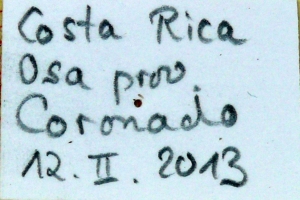 Costa Rica
Osa prov.
Coronado
12. II. 2013